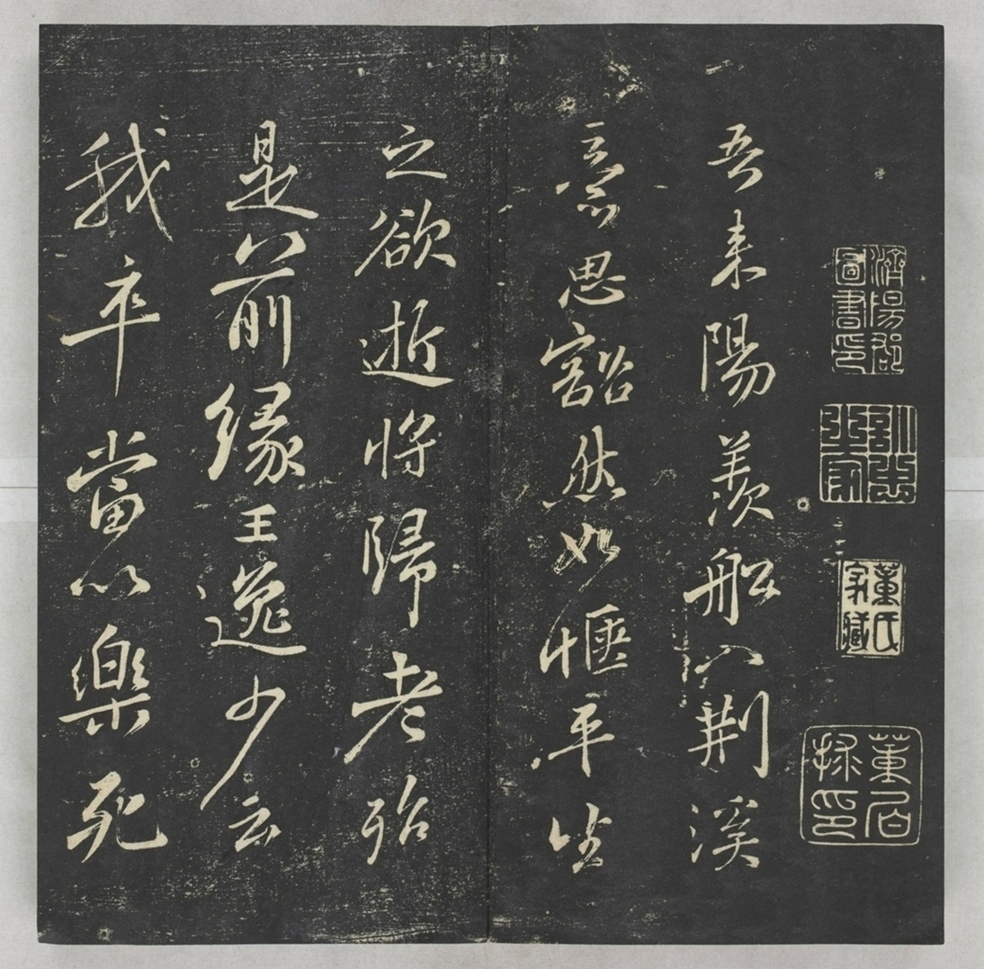 濟陽郡圖書印
董氏家藏
吾来陽羨船入荆溪
意思豁然如愜平生
之欲逝將歸老殆
是前緣王逸少云
我卒當以樂死